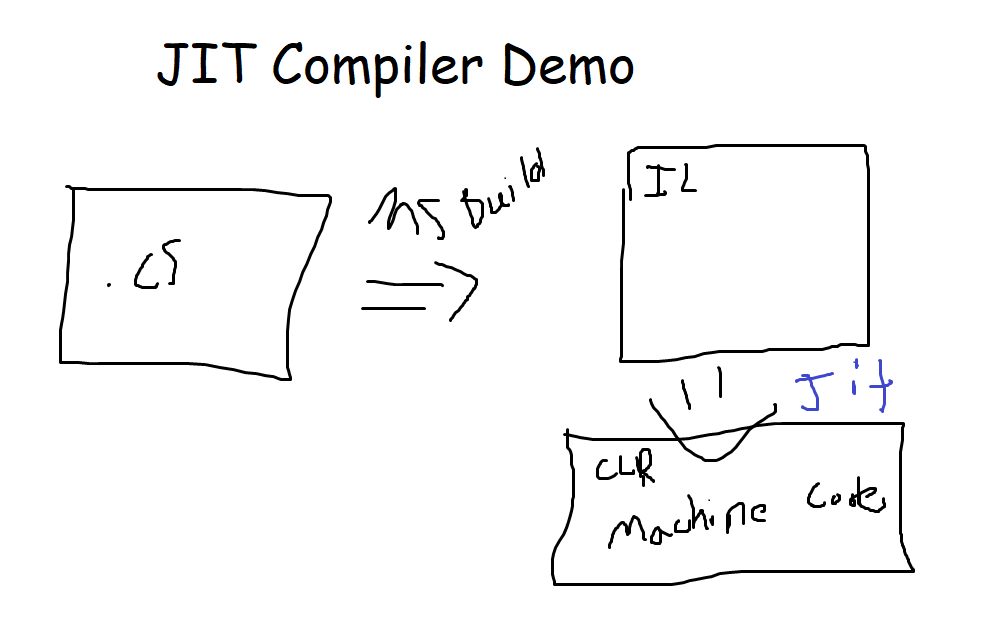 JIT Compiler Demo
MS build
IL
.cs
Jit
CLR
Machine Code